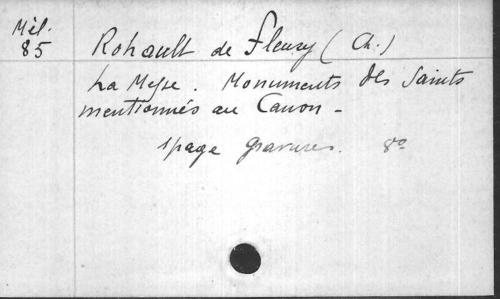 Mél.
85
Rohault de Fleury (Ch.)
La Messe. Monuments des Saints
mentionnés au Canon -
1 page gravures. 8º